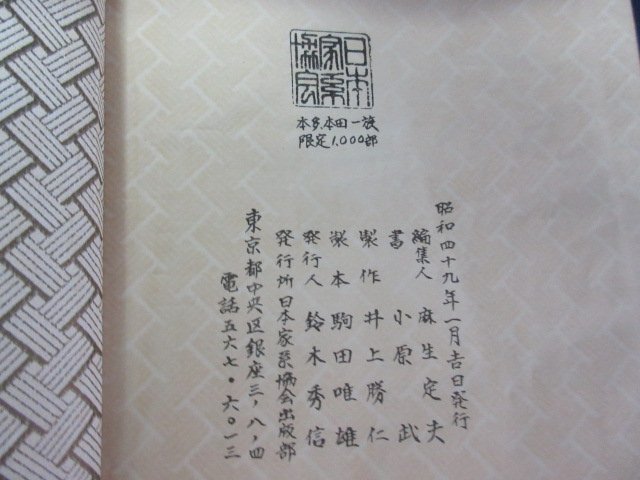 日本家系協会
本多.本田一族
限定1,000部
昭和四十九年一月吉日発行
編集人 麻生定夫
書 小原武
製作 井上勝仁
製本 駒田唯雄
発行人 鈴木秀信
発行所日本家系協会出版部
東京都中央区銀座三,八,四
電話五六七・六〇一三